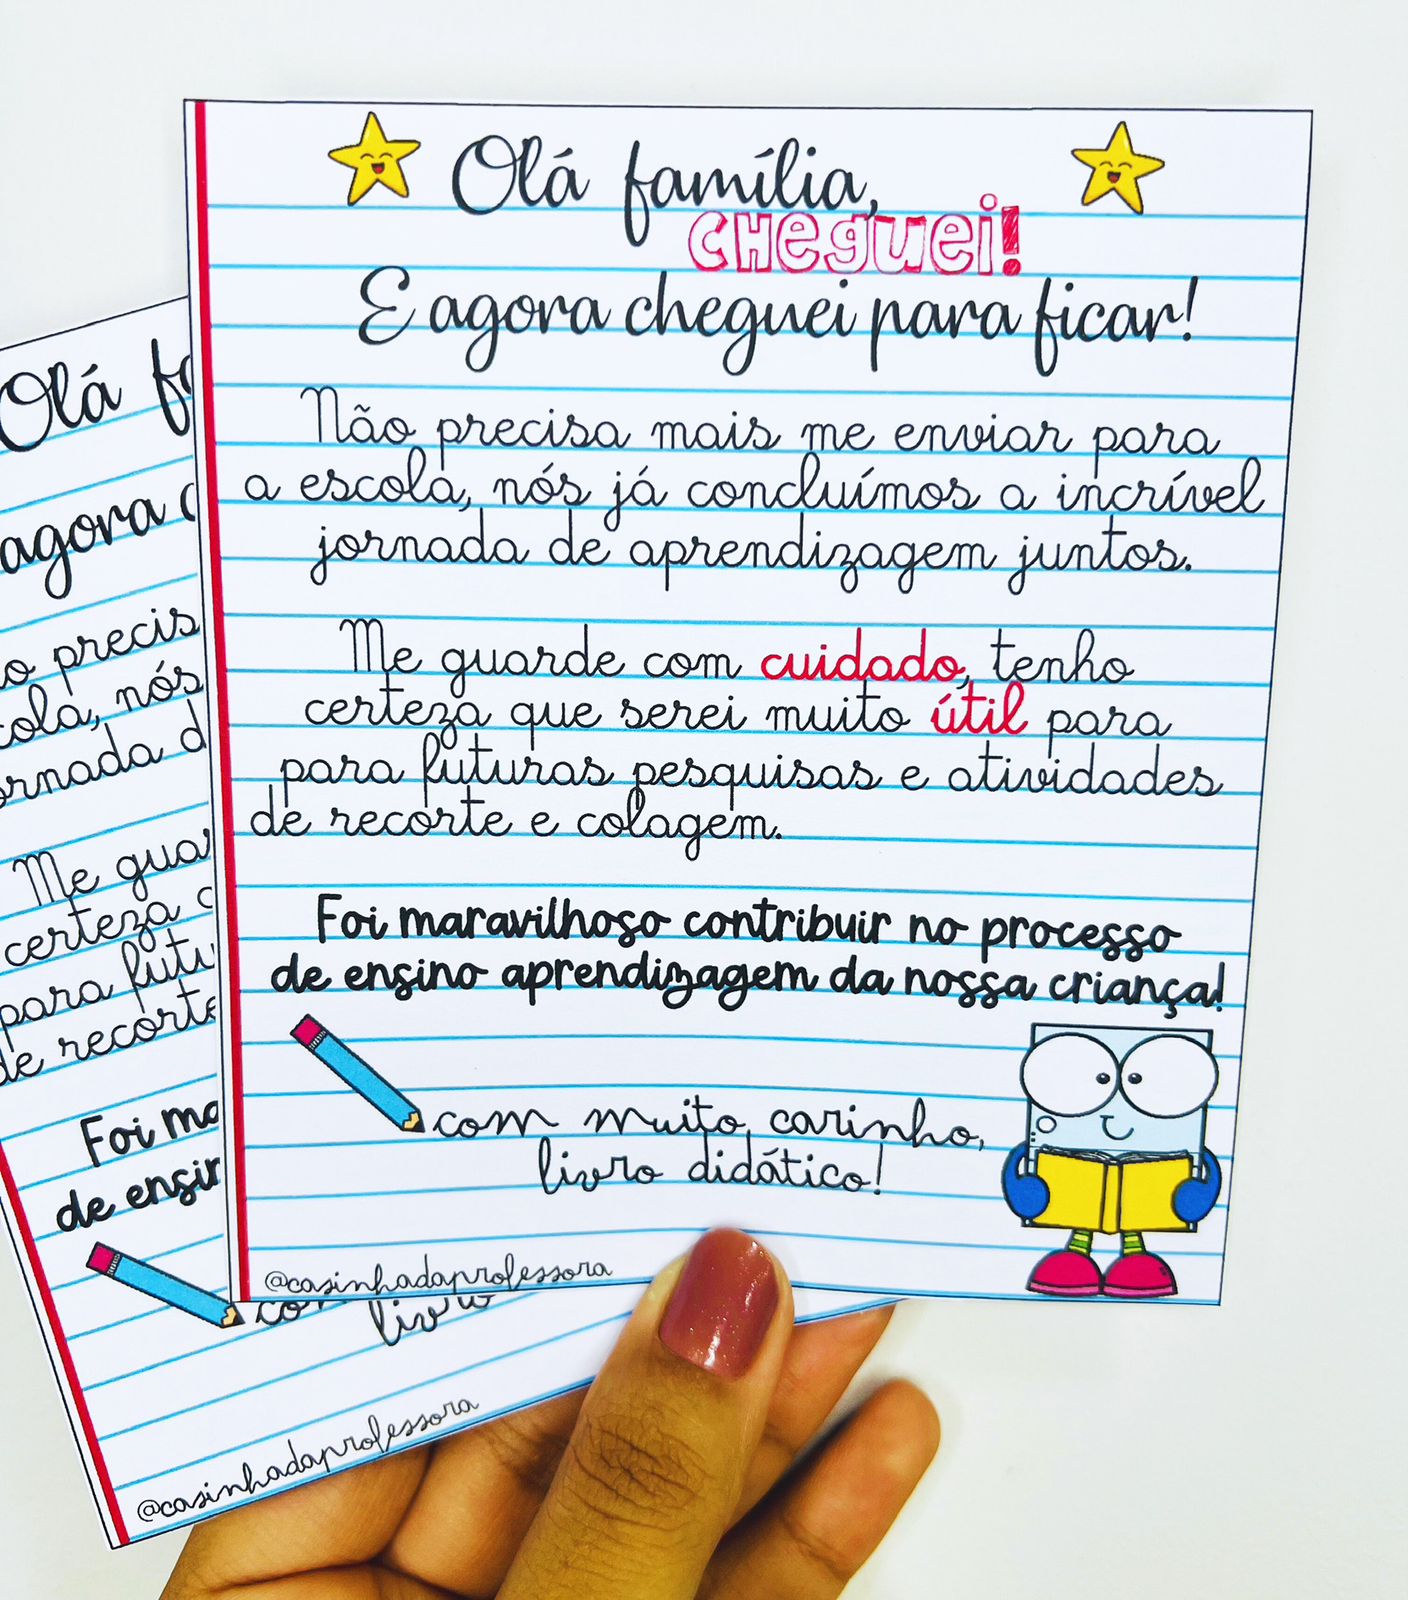 Olá família,
CHEGUEI!
E agora cheguei para ficar!
Não precisa mais me enviar para
a escola, nós já concluímos a incrível
jornada de aprendizagem juntos.
Me guarde com cuidado, tenho
certeza que serei muito útil para
para futuras pesquisas e atividades
de recorte e colagem.
Foi maravilhoso contribuir no processo
de ensino aprendizagem da nossa criança!
com muito carinho,
livro didático!
@casinhadaprofessora
Olá
agora
precis
nós
Me guar
certeza
para futu
de recorte
Foi ma
de ensin
livro
@casinhadaprofessora